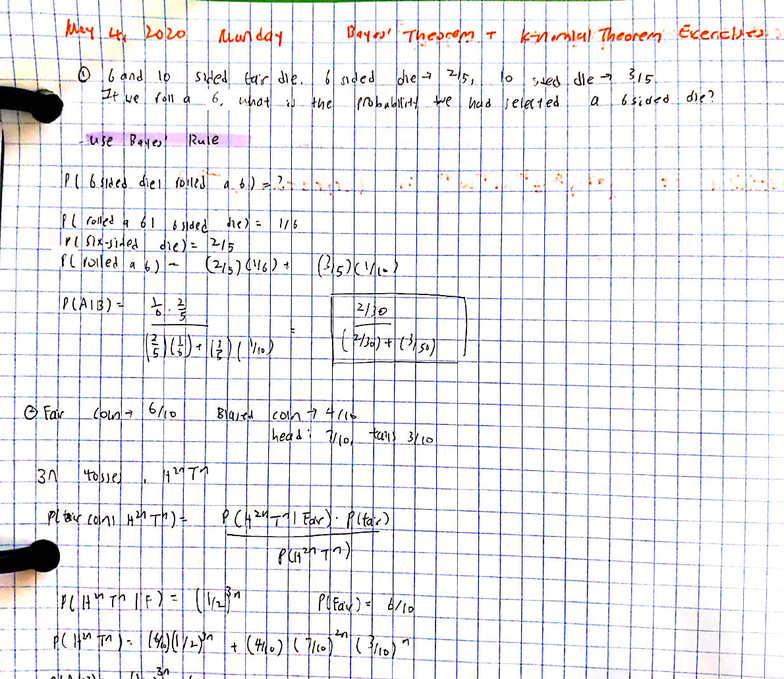 May 4, 2020 Munday Bayes' Theorem + Binomial Theorem Exercises
① 6 and 10 sided fair die. 6 sided die → 2/5, 10 sided die → 3/5.
If we roll a 6, what is the probability we had selected a 6 sided die?
- use Bayes' Rule
P( 6 sided die | rolled a 6) = ?
P( rolled a 6 | 6 sided die) = 1/6
P( six-sided die) = 2/5
P( rolled a 6) = (2/5)(1/6) + (3/5)(1/10)
P(A|B) = (1/6 · 2/5) / ((2/5)(1/6) + (3/5)(1/10)) = (2/30) / ((2/30) + (3/50))
② Fair coin → 6/10 Biased coin → 4/10
head: 7/10, tails 3/10
3n tosses, H²ⁿTⁿ
P(fair coin | H²ⁿTⁿ) = P(H²ⁿTⁿ | Fair) · P(fair) / P(H²ⁿTⁿ)
P( H²ⁿTⁿ | F) = (1/2)³ⁿ P(Fair) = 6/10
P( H²ⁿTⁿ) = (6/10)(1/2)³ⁿ + (4/10)(7/10)²ⁿ(3/10)ⁿ